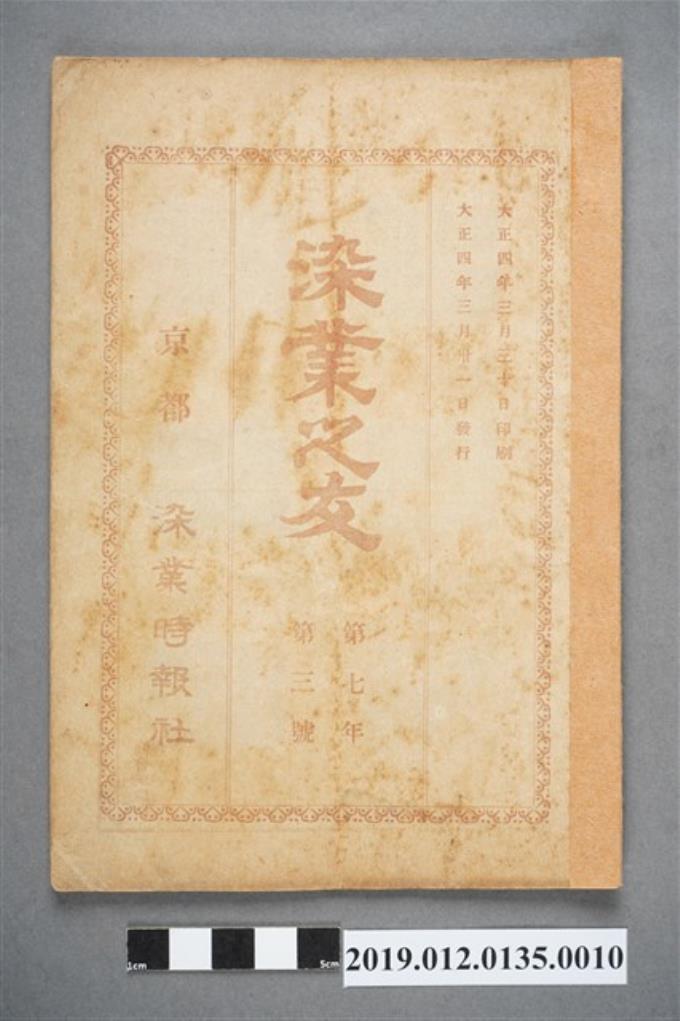 大正四年三月三十日印刷
大正四年三月卅一日發行
染業之友
第七年
第三號
京都 染業時報社
1cm
5cm
2019.012.0135.0010